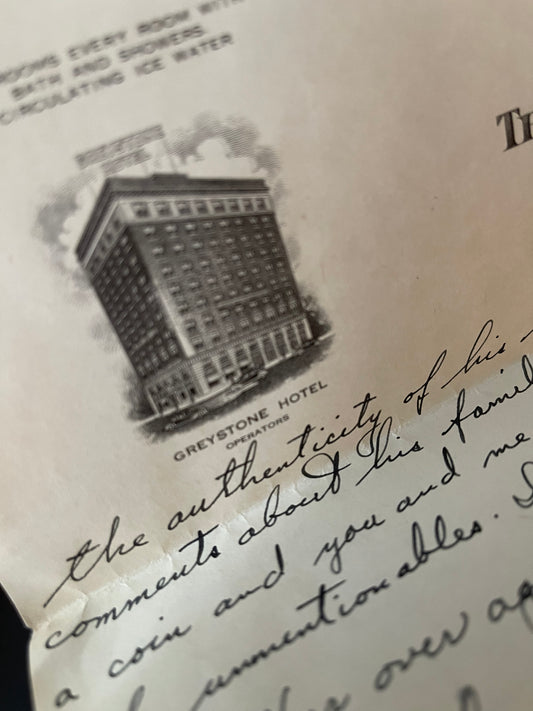 ROOMS EVERY ROOM WITH
BATH AND SHOWERS
CIRCULATING ICE WATER
TH
GREYSTONE HOTEL
OPERATORS
the authenticity of his
comments about his famil
a coin and you and me
unmentionables. I
over ag